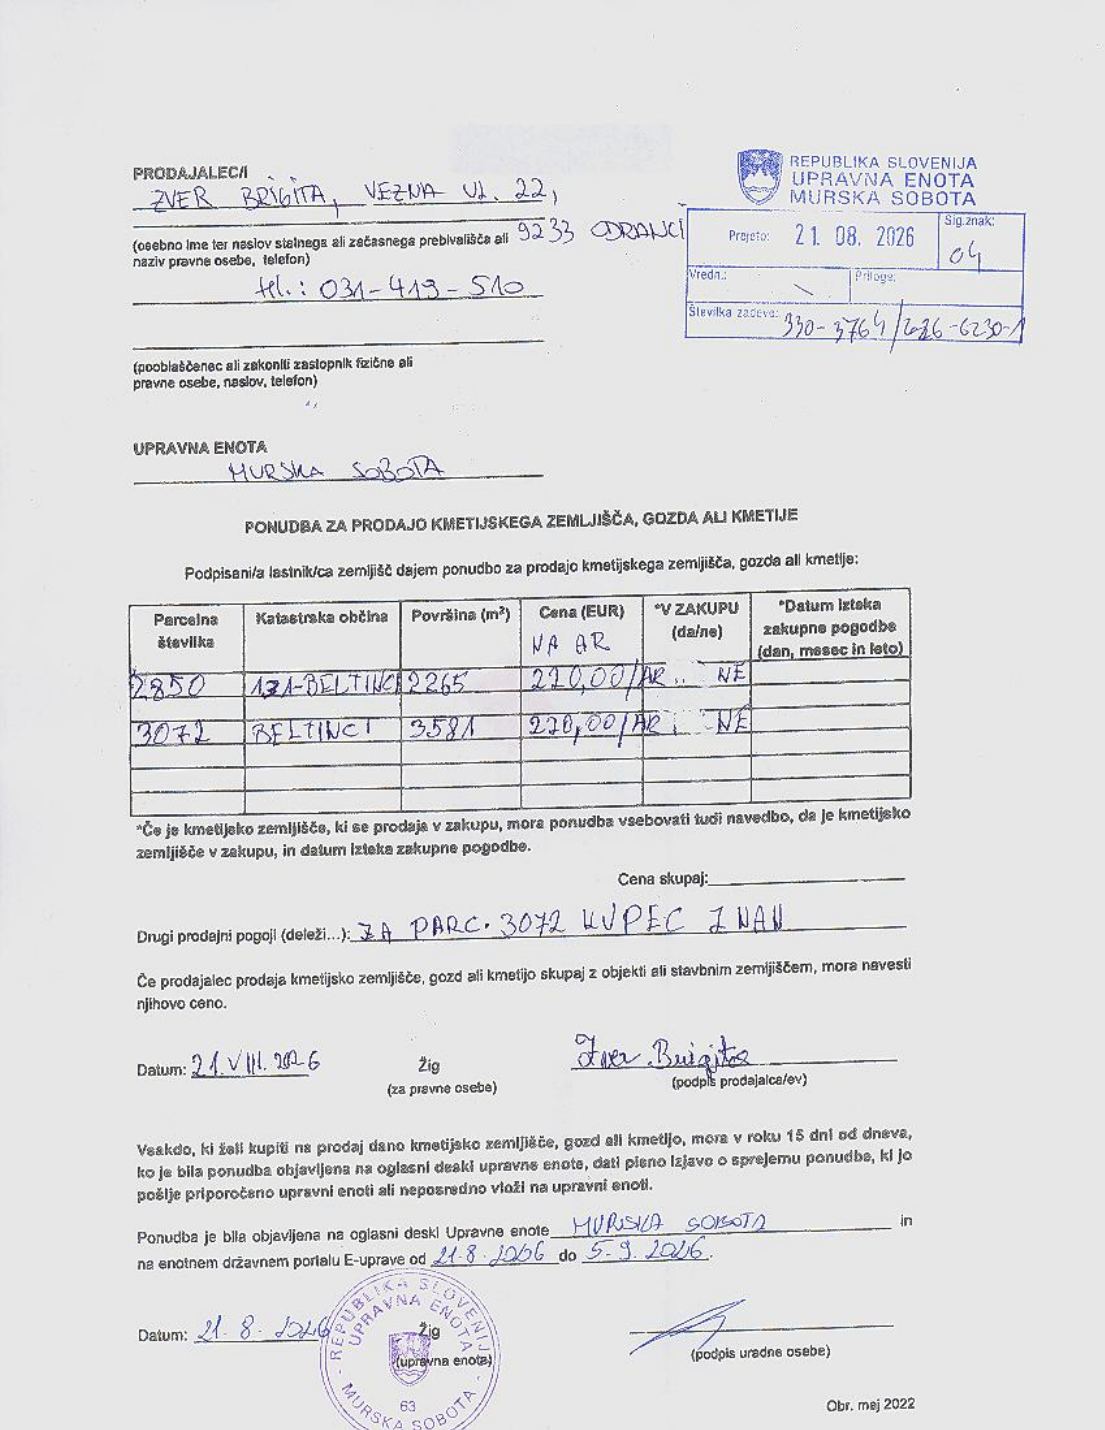 PRODAJALEC/I
ZVER BRIGITA, VEZNA UL. 22,
9233 ODRANCI
(osebno ime ter naslov stalnega ali začasnega prebivališča ali
naziv pravne osebe, telefon)
tel.: 031-419-510
(pooblaščenec ali zakoniti zastopnik fizične ali
pravne osebe, naslov, telefon)
REPUBLIKA SLOVENIJA
UPRAVNA ENOTA
MURSKA SOBOTA
Prejeto: 21. 08. 2026
Sig.znak:
04
Vredn.: \
Priloge:
Številka zadeve: 330-3764/2026-6230-1
UPRAVNA ENOTA
MURSKA SOBOTA
PONUDBA ZA PRODAJO KMETIJSKEGA ZEMLJIŠČA, GOZDA ALI KMETIJE
Podpisani/a lastnik/ca zemljišč dajem ponudbo za prodajo kmetijskega zemljišča, gozda ali kmetije:
Parcelna številka | Katastrska občina | Površina (m²) | Cena (EUR) NA AR | *V ZAKUPU (da/ne) | *Datum izteka zakupne pogodbe (dan, mesec in leto)
2850 | 121-BELTINCI | 2265 | 220,00/AR | NE
3072 | BELTINCI | 3581 | 220,00/AR | NE
*Če je kmetijsko zemljišče, ki se prodaja v zakupu, mora ponudba vsebovati tudi navedbo, da je kmetijsko
zemljišče v zakupu, in datum izteka zakupne pogodbe.
Cena skupaj:
Drugi prodajni pogoji (deleži...): ZA PARC. 3072 KUPEC ZNAN
Če prodajalec prodaja kmetijsko zemljišče, gozd ali kmetijo skupaj z objekti ali stavbnim zemljiščem, mora navesti
njihovo ceno.
Datum: 21. VIII. 2026
Žig
(za pravne osebe)
Zver Brigita
(podpis prodajalca/ev)
Vsakdo, ki želi kupiti na prodaj dano kmetijsko zemljišče, gozd ali kmetijo, mora v roku 15 dni od dneva,
ko je bila ponudba objavljena na oglasni deski upravne enote, dati pisno izjavo o sprejemu ponudbe, ki jo
pošlje priporočeno upravni enoti ali neposredno vloži na upravni enoti.
Ponudba je bila objavljena na oglasni deski Upravne enote MURSKA SOBOTA in
na enotnem državnem portalu E-uprave od 21.8.2026 do 5.9.2026.
Datum: 21.8.2026
Žig
(upravna enota)
(podpis uradne osebe)
REPUBLIKA SLOVENIJA
UPRAVNA ENOTA
63
MURSKA SOBOTA
Obr. maj 2022